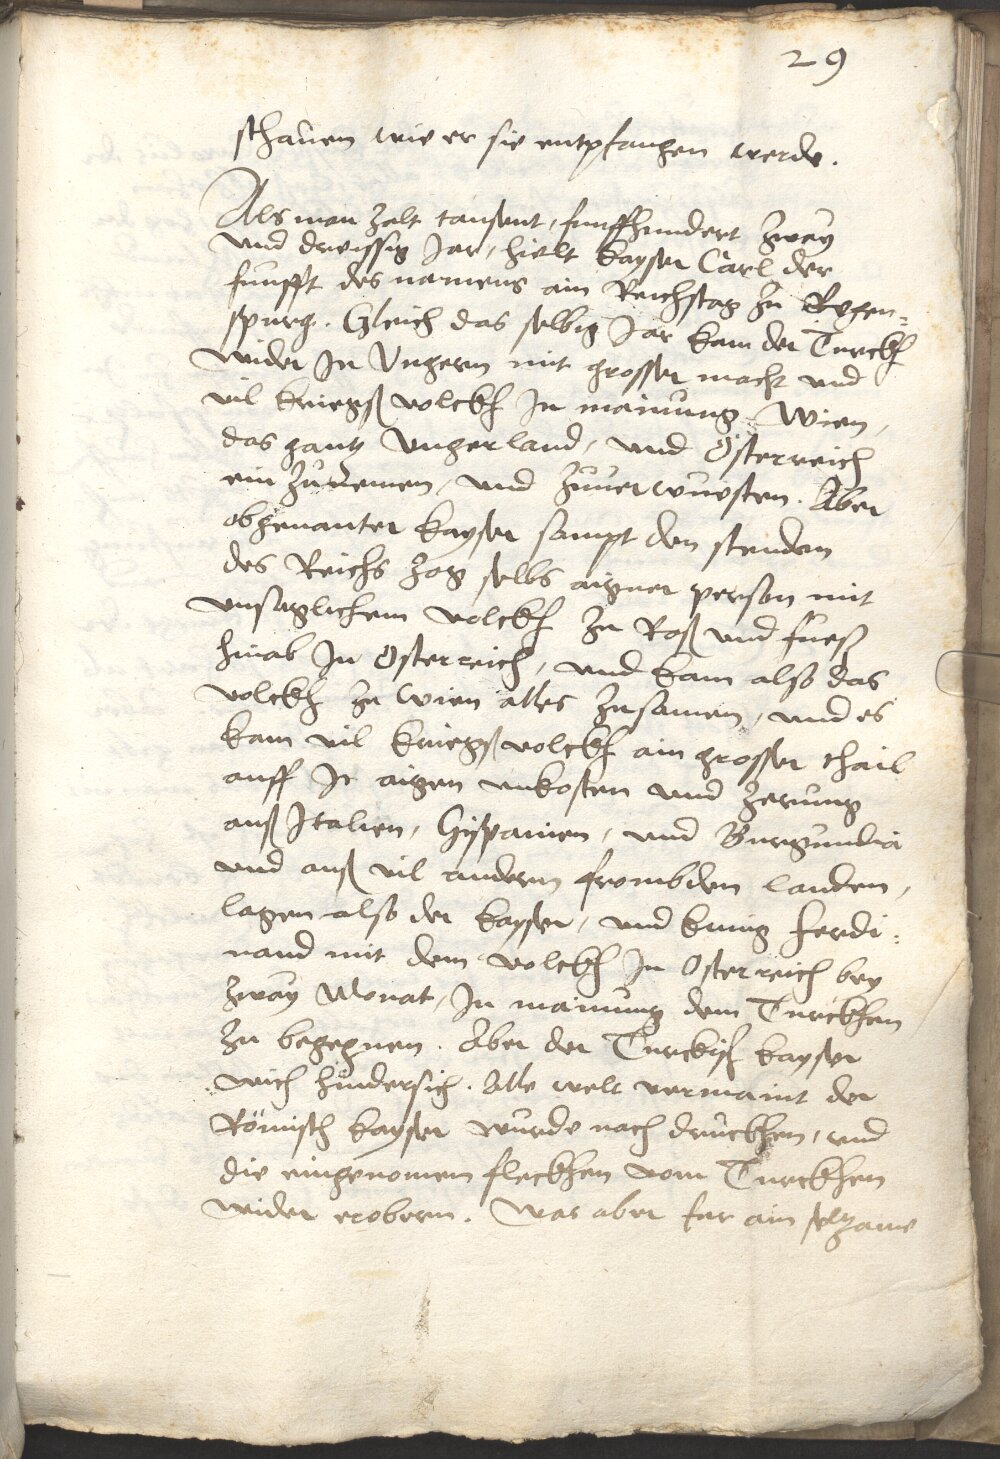 29
schauen wie er sie entpfangen werde.
Als man zalt tausent, funffhundert zway
und dreissig Jar, hielt kayser Carl der
funfft des namens ain Reichstag zu Regen=
spurg. Gleich das selbig Jar kam der Turckh
wider In Ungern mit grosser macht und
vil kriegß volckh In mainung Wien,
das gantz Ungerland, und Österreich
ein zunemen, und zuverwuesten. Aber
obgenanter kayser sampt den stenden
des Reichs zog selbs aigner person mit
unsaglichem volckh zu Roß und fueß
hinab In Österreich, und kam also das
volckh zu Wien alles zusamen, und es
kam vil kriegßvolckh ain grosser thail
auff Ir aigen unkosten und zerung
auß Italien, Hispanien, und Burgundia
und auß vil andern frombden landen,
lagen also der kayser, und kunig Ferdi=
nand mit dem volckh In Osterreich bey
zway Monat, In mainung dem Turckhen
zu begegnen. Aber der Turckisch kayser
wich hindersich. Alle welt vermaint der
Römisch kayser wurde nach druckhen, und
die eingenomen fleckhen vom Turckhen
wider erobern. Was aber fur ain seltzame